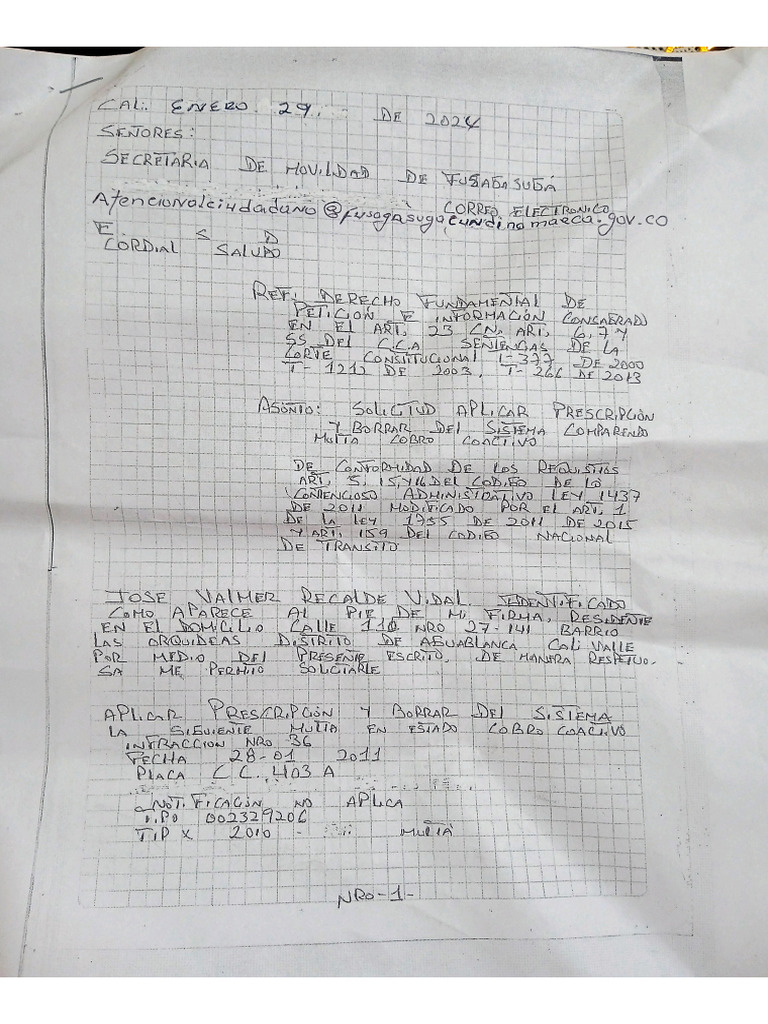 CALI: ENERO. 29. DE 2024
SEÑORES:
SECRETARIA DE MOVILDAD DE FUSAGASUGÁ
CORREO ELECTRONICO
Atencionalciudadano@fusagasugacundinamarca.gov.co
E. S D
CORDIAL SALUDO
REF: DERECHO FUNDAMENTAL DE
PETICION E INFORMACIÓN CONSAGRADO
EN EL ART. 23 CN, ART, 6,7 Y
SS. DEL C.C.A SENTENCIAS DE LA
CORTE CONSTITUCIONAL T-377 DE 2000
T-1212 DE 2003. T-266 DE 2013
ASONTO: SOLICITUD APLICAR PRESCRIPCIÓN
Y BORRAR DEL SISTEMA COMPARENDO
MULTA COBRO COACTIVO
DE CONFORMIDAD DE LOS REQUISITOS
ART, 5, 15, Y 16 DEL CODIGO DE LO
CONTENCIOSO ADMINISTRATIVO LEY 1437
DE 2011 MODIFICADO POR EL ART, 1
DE LA LEY 1755 DE 2011 DE 2015
Y ART, 159 DEL CODIGO NACIONAL
DE TRANSITO
JOSE VALMER RECALDE VIDAL. IDENTIFICADO
COMO APARECE AL PIE DE MI FIRMA, RESIDENTE
EN EL DOMICILIO CALLE 110 NRO 27-141 BARRIO
LAS ORQUIDEAS DISTRITO DE AGUABLANCA CALI VALLE
POR MEDIO DEL PRESENTE ESCRITO, DE MANERA RESPETUO.
SA ME PERMITO SOLICITARLE
APLICAR PRESCRIPCIÓN Y BORRAR DEL SISTEMA
LA SIGUIENTE MULTA EN ESTADO COBRO COACTIVO
INFRACCION NRO 36
FECHA 28-01 2011
PLACA CC. 403 A
NOTIFICACIÓN NO APLICA
TIPO 002329206
TIP X 2010 - MULTA
NRO-1-